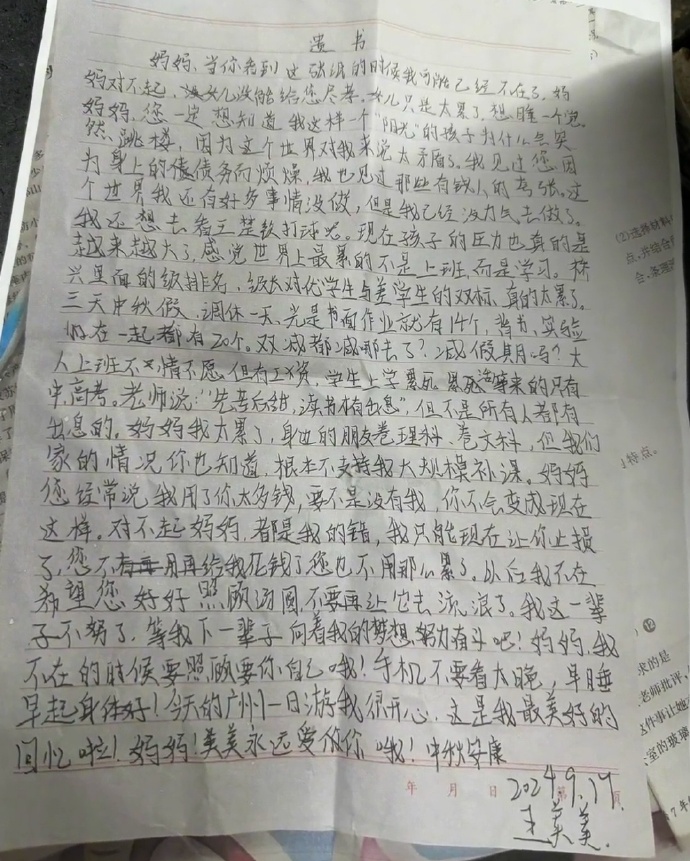 遗书
妈妈，当你看到这张纸的时候我可能已经不在了，妈
妈对不起，女儿没能给您尽孝，女儿只是太累了，想睡一个觉
妈妈，您一定想知道我这样一个"阳光"的孩子为什么会突
然跳楼，因为这个世界对我来说太矛盾了。我见过您因
为身上的债债务而烦燥，我也见过那些有钱人的嚣张。这
个世界我还有好多事情没做，但是我已经没力气去做了。
我还想去看王楚钦打球呢。现在孩子的压力也真的是
越来越大了，感觉世界上最累的不是上班，而是学习。
兴里面的级排名，级长对优学生与差学生的双标，真的太累了。
三天中秋假，调休一天，光是书面作业就有14个，背书，实验
加在一起都有20个。双减都减哪去了？减假期吗？大
人上班不情不愿但有工资，学生上学累死累死等来的只有
中高考。老师说："先苦后甜，读书才有出息"，但不是所有人都有
出息的。妈妈我太累了，身边的朋友卷理科，卷文科，但我们
家的情况你也知道，根本不支持我大规模补课。妈妈
您经常说我用了你太多钱，要不是没有我，你不会变成现在
这样。对不起妈妈，都是我的错，我只能现在让你止损
了，您不用再给我花钱了您也不用那么累了。以后我不在
希望您好好照顾汤圆，不要再让它去流浪了。我这一辈
子不努了，等我下一辈子向着我的梦想努力奋斗吧！妈妈，我
不在的时候要照顾要你自己哦！手机不要看太晚，早睡
早起身体好！今天的广州一日游我很开心，这是我最美好的
回忆啦！妈妈！美美永远爱你哦！中秋安康
年 月 日 第 页
2024.9.17.
王美美.
(2)选择材料
特点。
求的是
老师批评，
室的玻璃